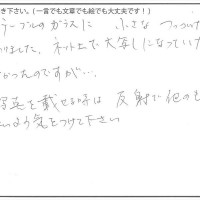 き下さい。(一言でも文章でも絵でも大丈夫です!)
テーブルのガラスに 小さな
りました。ネット上で大写しになっていた
かったのですが…。
写真を載せる時は 反射で他のも
いよう気をつけて下さい